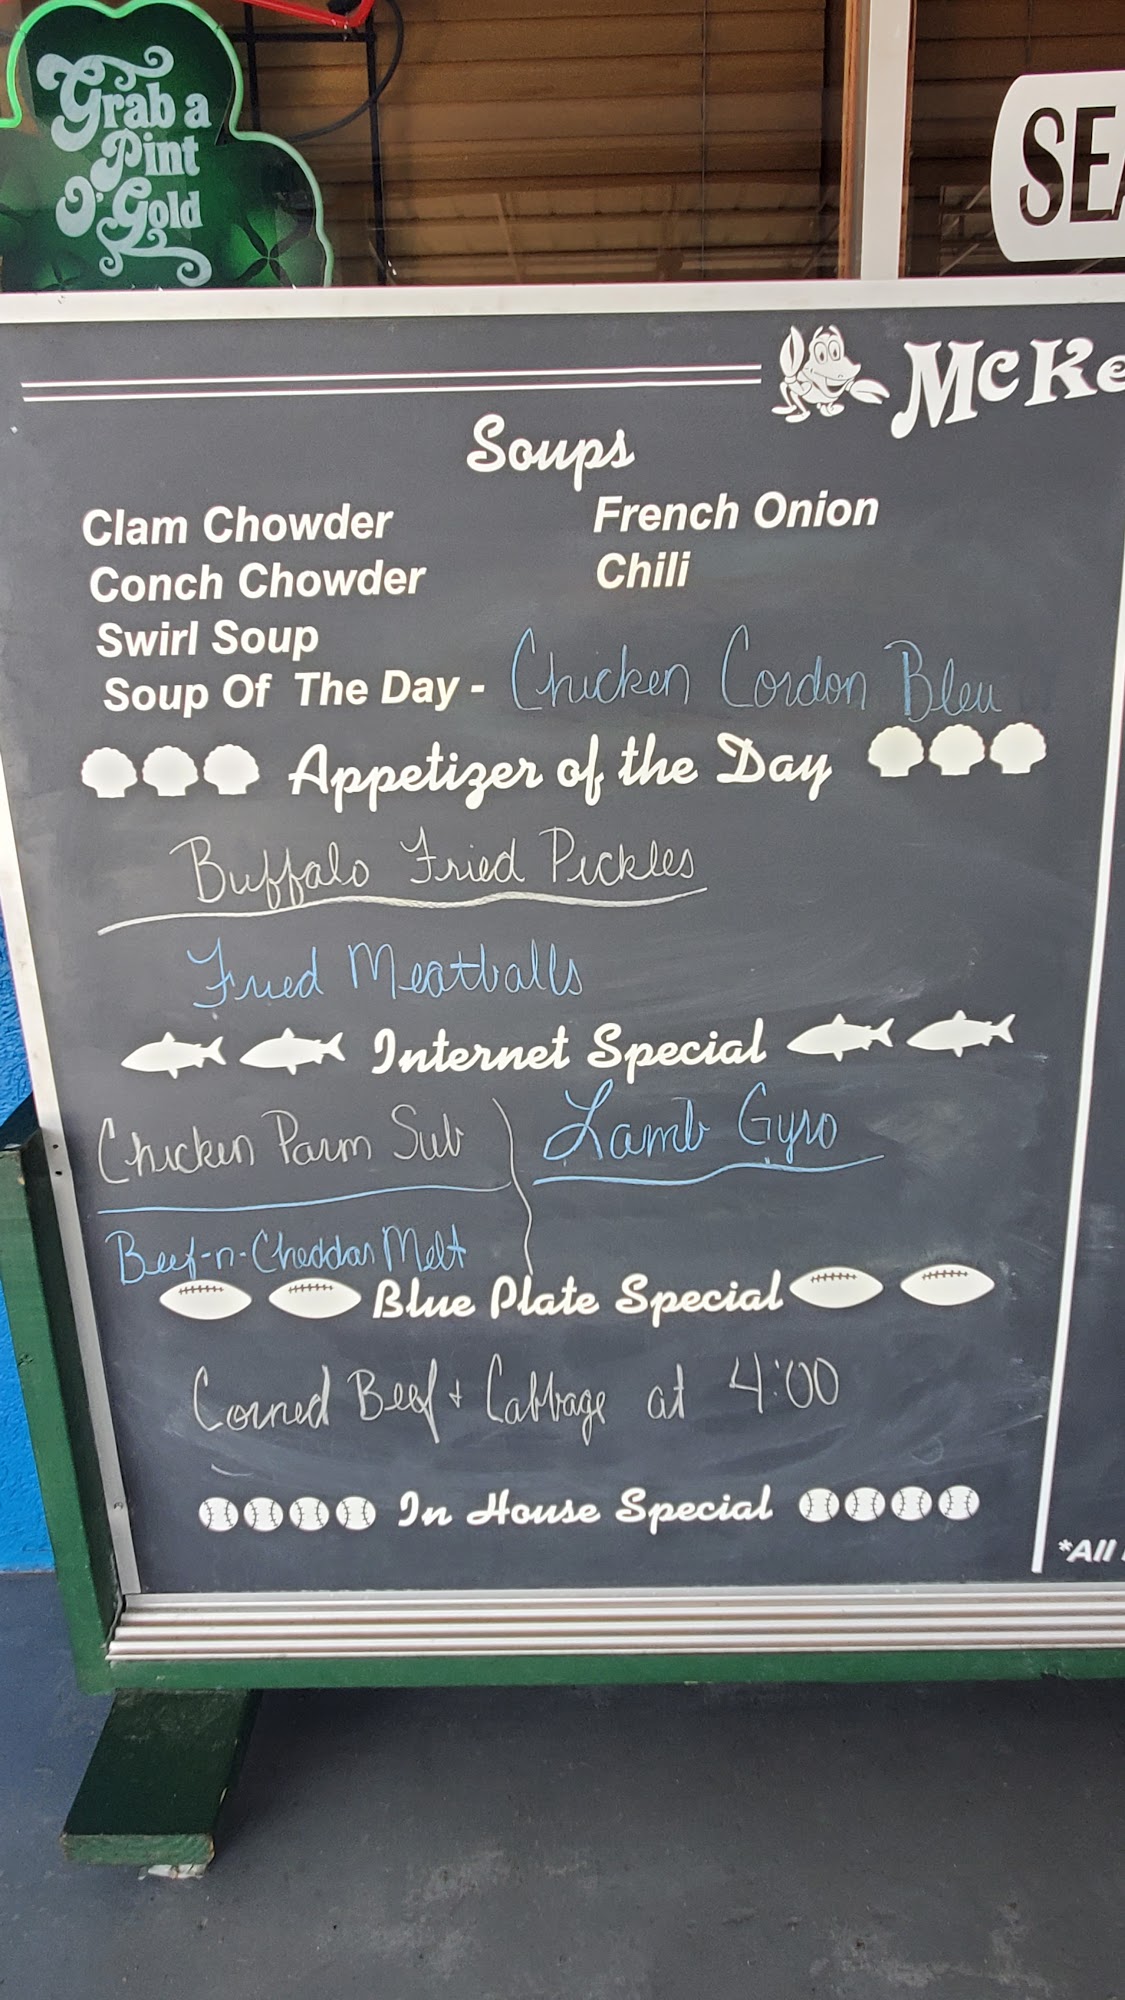 Grab a
Pint
O' Gold
SEA
McKe
Soups
Clam Chowder
French Onion
Conch Chowder
Chili
Swirl Soup
Soup Of The Day - Chicken Cordon Bleu
Appetizer of the Day
Buffalo Fried Pickles
Fried Meatballs
Internet Special
Chicken Parm Sub
Lamb Gyro
Beef-n-Cheddar Melt
Blue Plate Special
Corned Beef + Cabbage at 4:00
In House Special
*All